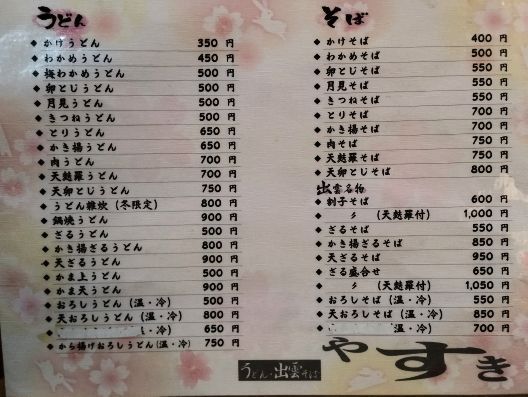 うどん
◆ かけうどん 350 円
◆ わかめうどん 450 円
◆ 梅わかめうどん 500 円
◆ 卵とじうどん 500 円
◆ 月見うどん 500 円
◆ きつねうどん 500 円
◆ とりうどん 650 円
◆ かき揚うどん 650 円
◆ 肉うどん 700 円
◆ 天麩羅うどん 700 円
◆ 天卵とじうどん 750 円
◆ うどん雑炊（冬限定） 800 円
◆ 鍋焼うどん 900 円
◆ ざるうどん 500 円
◆ かき揚ざるうどん 800 円
◆ 天ざるうどん 900 円
◆ かま上うどん 500 円
◆ かま天うどん 900 円
◆ おろしうどん（温・冷） 500 円
◆ 天おろしうどん（温・冷） 800 円
◆ ・冷） 650 円
◆ から揚げおろしうどん（温・冷） 750 円
そば
◆ かけそば 400 円
◆ わかめそば 500 円
◆ 卵とじそば 550 円
◆ 月見そば 550 円
◆ きつねそば 550 円
◆ とりそば 700 円
◆ かき揚そば 700 円
◆ 肉そば 750 円
◆ 天麩羅そば 750 円
◆ 天卵とじそば 800 円
出雲名物
◆ 割子そば 600 円
◆ 〃 （天麩羅付） 1,000 円
◆ ざるそば 550 円
◆ かき揚ざるそば 850 円
◆ 天ざるそば 950 円
◆ ざる盛合せ 650 円
◆ 〃 （天麩羅付） 1,050 円
◆ おろしそば（温・冷） 550 円
◆ 天おろしそば（温・冷） 850 円
◆ 温・冷） 700 円
うどん・出雲そば
やすき